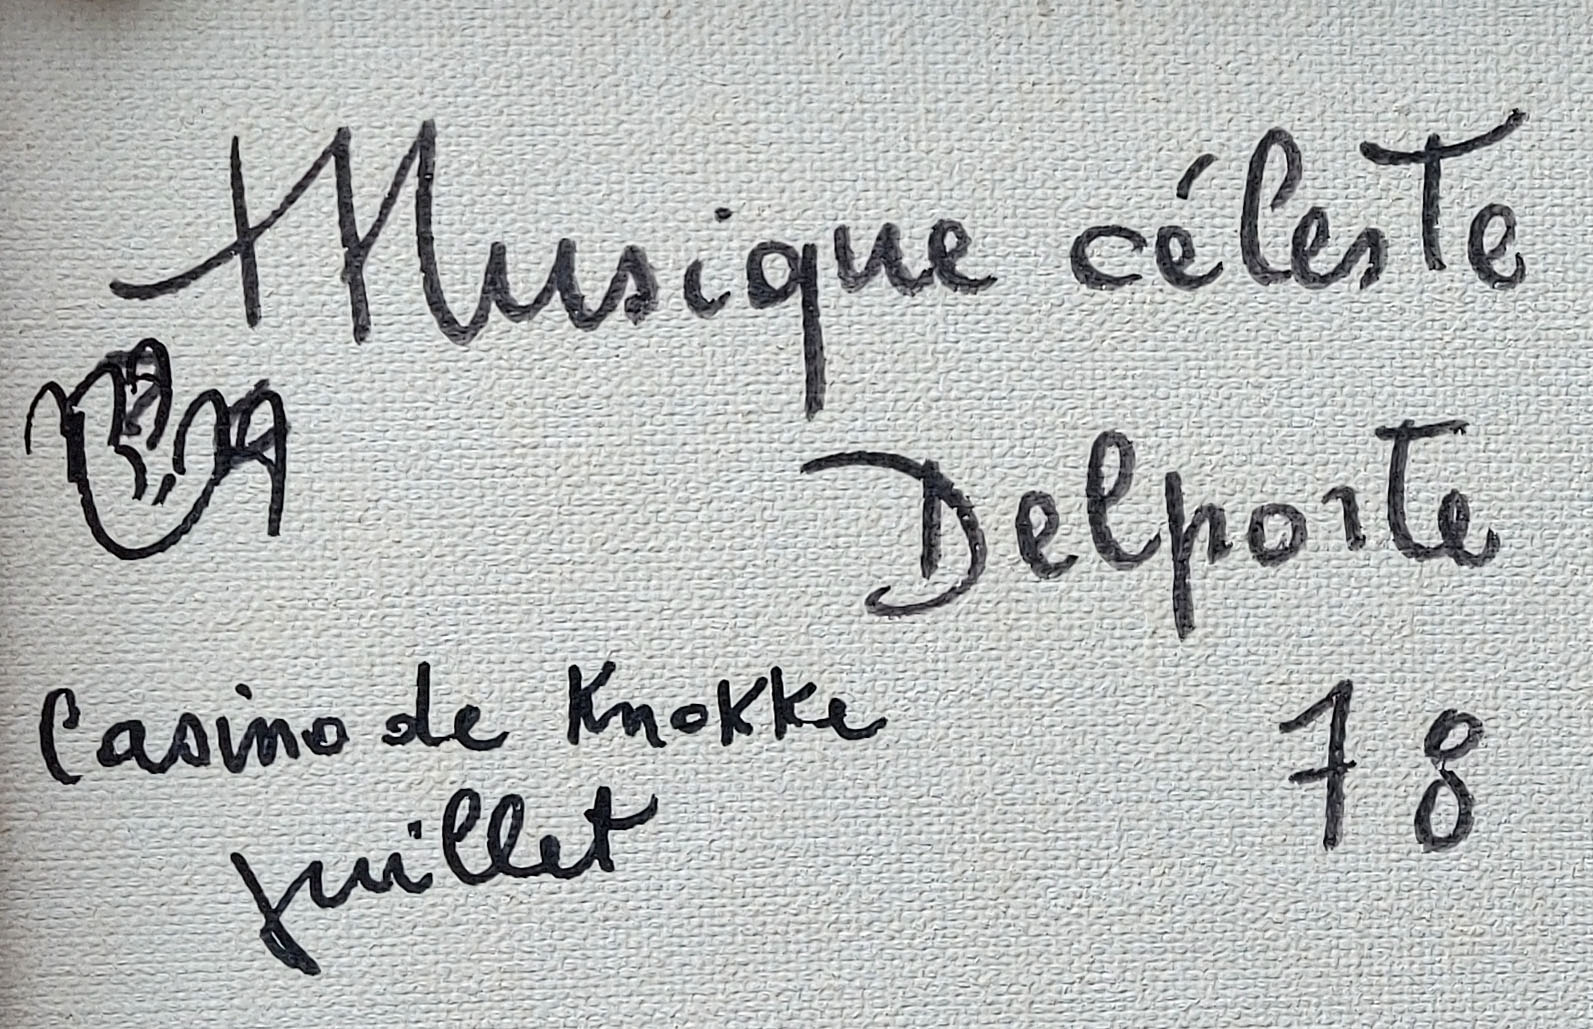 Musique céleste
Delporte
78
Casino de Knokke
juillet